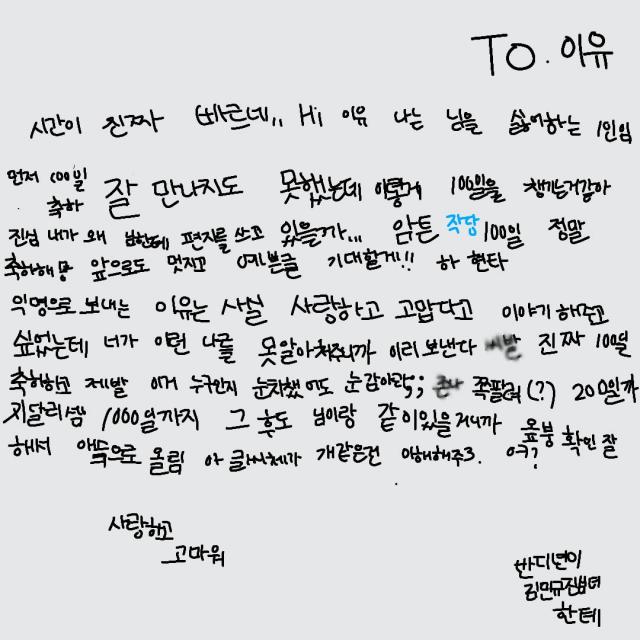 To. 이유
시간이 진짜 빠르네,, Hi 이유 나는 님을 싫어하는 1인임
먼저 100일 축하 잘 만나지도 못했는데 이렇게 100일을 챙기는거같아
진심 내가 왜 님한테 편지를 쓰고 있을까... 암튼 작담 100일 정말
축하해 앞으로도 멋지고 예쁜글 기대할게!! 하 현타
익명으로 보내는 이유는 사실 사랑하고 고맙다고 이야기 해주고
싶었는데 너가 이런 나를 못알아쳐주니까 이리 보낸다 씨발 진짜 100일
축하하고 제발 이거 누구인지 눈치챘어도 눈감아라;; 존나 쪽팔려(?) 200일까
지달리셈 1000일까지 그 후도 님이랑 같이있을거니까 확인 잘
해서 올림 아 글씨체가 개같은건 이해해주3. 어??
사랑하고
고마워
한테